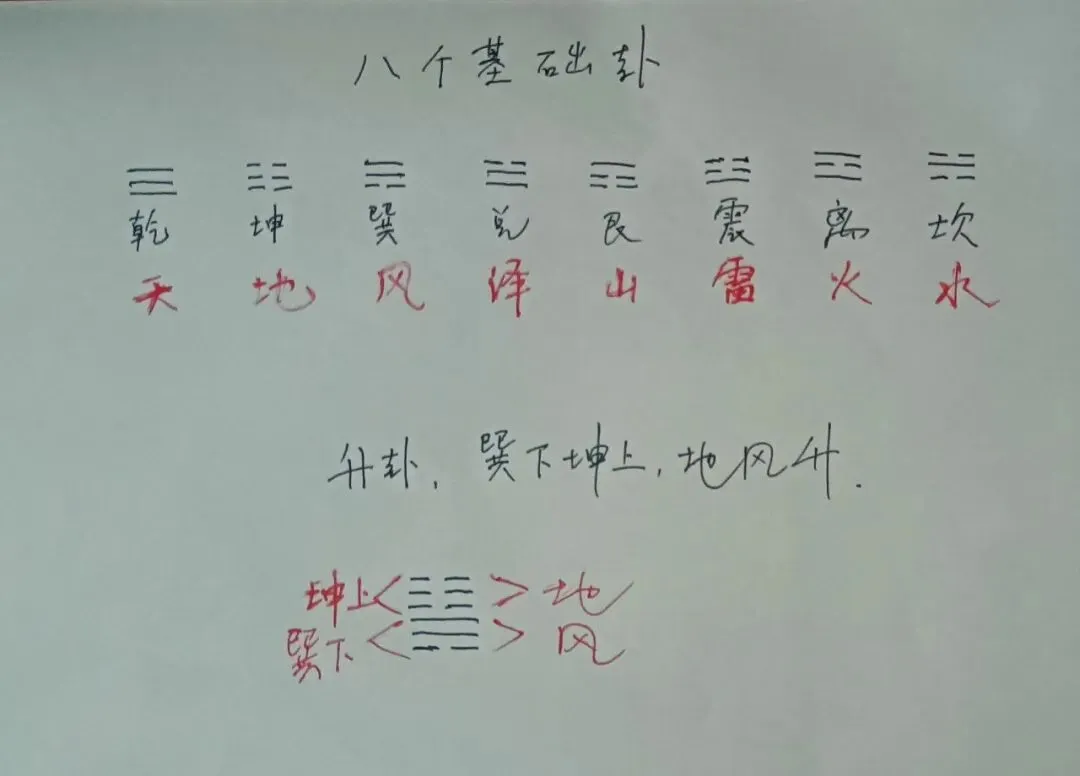 八个基础卦
☰ ☷ ☴ ☱ ☶ ☳ ☲ ☵
乾 坤 巽 兑 艮 震 离 坎
天 地 风 泽 山 雷 火 水
升卦，巽下坤上，地风升.
坤上< >地
巽下< >风